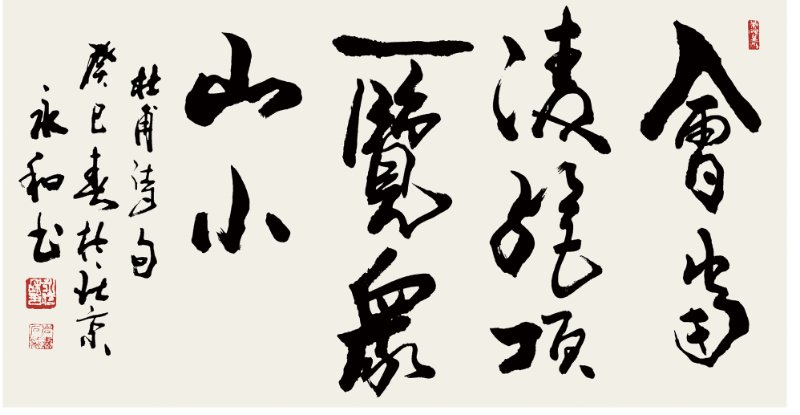 會當
凌絶頂
一覽眾
山小
杜甫詩句
癸巳春於北京
永和书